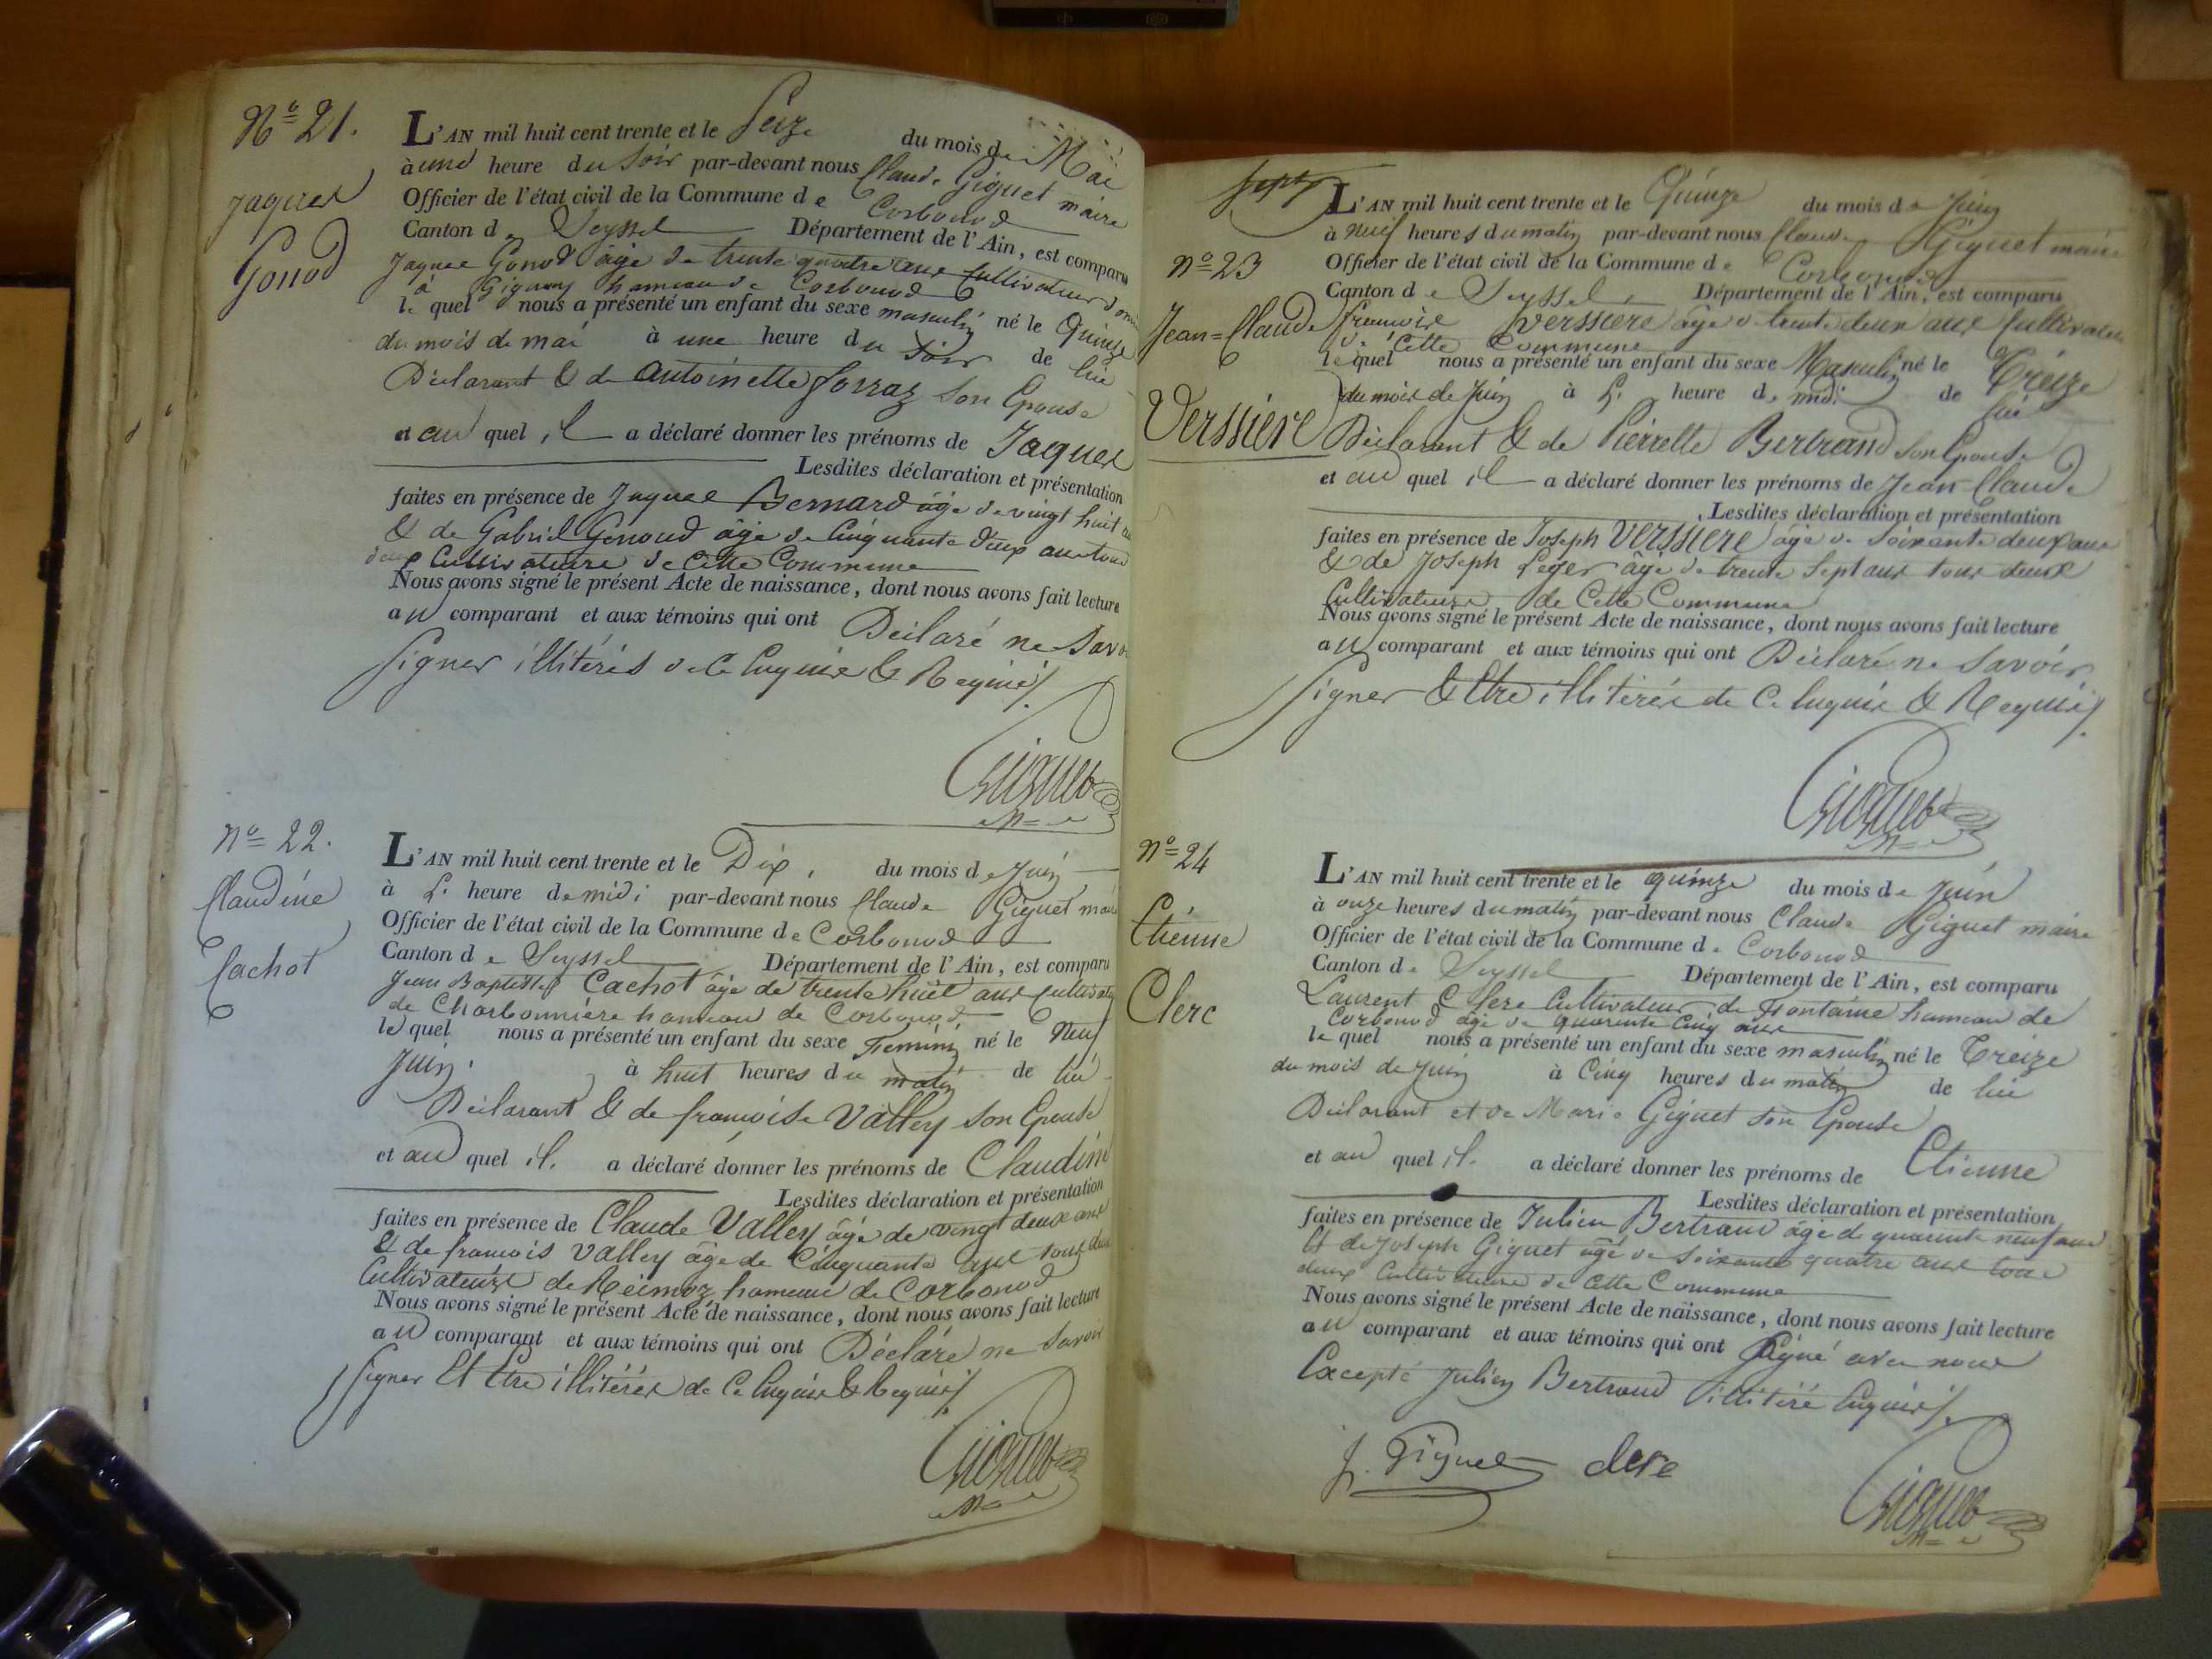 Nº 21.
Jaques
Gonod
L'AN mil huit cent trente et le Seize du mois de Mai
à une heure du Soir par-devant nous Claude Giguet maire
Officier de l'état civil de la Commune de Corbonod
Canton de Seyssel Département de l'Ain, est comparu
Jaques Gonod âgé de trente quatre ans Cultivateur
à Gignay hameau de Corbonod
lequel nous a présenté un enfant du sexe masculin né le Quinze
du mois de mai à une heure du Soir de lui
Déclarant & de Antoinette Sorraz Son Epouse
et au quel il a déclaré donner les prénoms de Jaques
Lesdites déclaration et présentation
faites en présence de Jaques Bernard âgé de vingt huit
& de Gabriel Genoud âgé de Cinquante Deux ans tous
deux Cultivateurs de Cette Commune
Nous avons signé le présent Acte de naissance, dont nous avons fait lecture
au comparant et aux témoins qui ont Déclaré ne Savoir
Signer illitérés de Ce Enquis & Requis/.
Giguet
Nº 22.
Claudine
Cachot
L'AN mil huit cent trente et le Dix, du mois de Juin
à L. heure de midi par-devant nous Claude Giguet maire
Officier de l'état civil de la Commune de Corbonod
Canton de Seyssel Département de l'Ain, est comparu
Jean Baptiste Cachot âgé de trente huit ans Cultivateur
de Charbonnière hameau de Corbonod
lequel nous a présenté un enfant du sexe Feminin né le Neuf
Juin. à huit heures du matin de lui
Déclarant & de françoise Valley son Epouse
et au quel il. a déclaré donner les prénoms de Claudine
Lesdites déclaration et présentation
faites en présence de Claude Valley âgé de vingt deux ans
& de françois Valley âgé de Cinquante ans tous deux
Cultivateurs de Reimoz hameau de Corbonod
Nous avons signé le présent Acte de naissance, dont nous avons fait lecture
au comparant et aux témoins qui ont Déclaré ne Savoir
Signer Et Etre illitérés de Ce Enquis & Requis/.
Giguet
Sept
Nº 23
Jean=Claude
Verssiere
L'AN mil huit cent trente et le Quinze du mois de Juin
à neuf heures du matin par-devant nous Claude Giguet maire
Officier de l'état civil de la Commune de Corbonod
Canton de Seyssel Département de l'Ain, est comparu
françoise Verssiere âgé de trente deux ans Cultivateur
de Cette Commune
lequel nous a présenté un enfant du sexe Masculin né le Treize
du mois de Juin à L. heure de midi de lui
Déclarant & de Pierrette Bertrand Son Epouse
et au quel il a déclaré donner les prénoms de Jean Claude
Lesdites déclaration et présentation
faites en présence de Joseph Verssiere âgé de Soixante deux ans
& de Joseph Leger âgé de trente Sept ans tous deux
Cultivateurs de Cette Commune
Nous avons signé le présent Acte de naissance, dont nous avons fait lecture
au comparant et aux témoins qui ont Déclaré ne Savoir
Signer & Etre illitérés de Ce Enquis & Requis/.
Giguet
Nº 24
Etienne
Clerc
L'AN mil huit cent trente et le quinze du mois de Juin
à onze heures du matin par-devant nous Claude Giguet maire
Officier de l'état civil de la Commune de Corbonod
Canton de Seyssel Département de l'Ain, est comparu
Laurent Clerc Cultivateur de Fontaine hameau de
Corbonod âgé de quarante Cinq ans
lequel nous a présenté un enfant du sexe masculin né le Treize
du mois de Juin à Cinq heures du matin de lui
Déclarant et de Marie Giguet Son Epouse
et au quel il. a déclaré donner les prénoms de Etienne
Lesdites déclaration et présentation
faites en présence de Julien Bertrand âgé de quarante neuf ans
Et de Joseph Giguet âgé de Soixante quatre ans tous
deux Cultivateurs de Cette Commune
Nous avons signé le présent Acte de naissance, dont nous avons fait lecture
au comparant et aux témoins qui ont Signé avec nous
Excepté Julien Bertrand illitéré Enquis/.
J. Giguet Clerc
Giguet